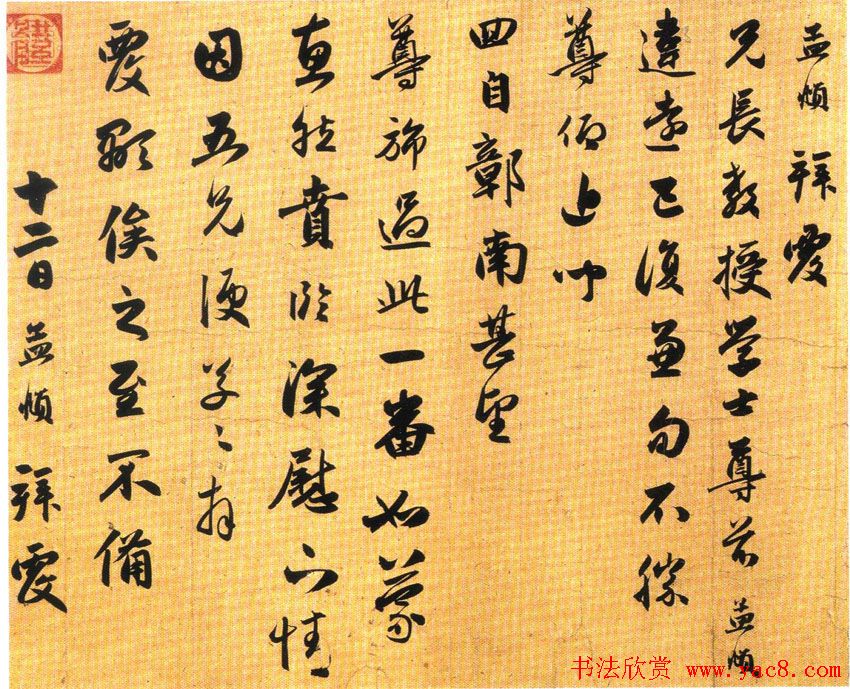 孟頫拜覆
兄長教授学士尊前孟頫
違遠已復兼旬不勝
尊仰近聞
四自彰南甚望
尊旆過此一番如蒙
惠然賁臨深慰下情
因五兄便草〻拜
覆顒俟之至不備
十二日孟頫拜覆
书法欣赏 www.yac8.com